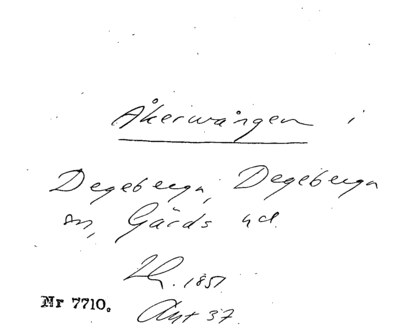 Åkerwången i
Degeberga, Degeberga
sn, Gärds hd.
1851
Nr 7710. Akt 37